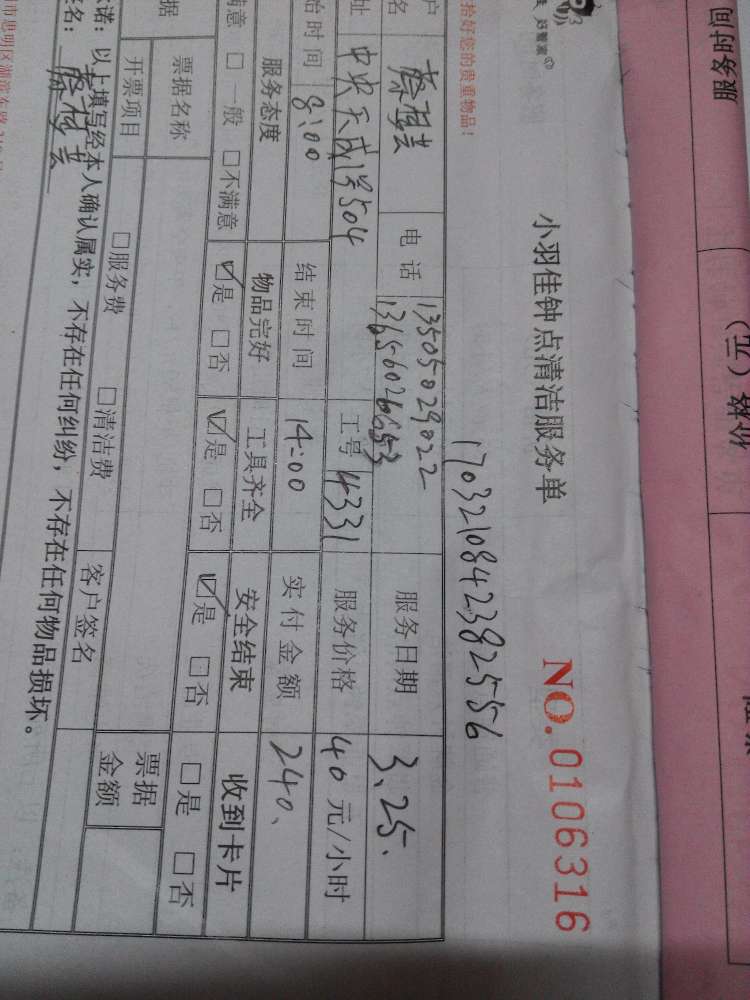 小羽佳钟点清洁服务单
NO. 0106316
拾好您的贵重物品！
17032108423825556
户名 电话 13505029022 服务日期 3.25.
13656026653
址 中央天成1号504 工号 4331 服务价格 40元/小时
始时间 8:00 结束时间 14:00 实付金额 240.
服务态度 物品完好 工具齐全 安全结束 收到卡片
满意 □一般 □不满意 ☑是 □否 ☑是 □否 ☑是 □否 □是 □否
据 票据名称 票据金额
开票项目 □服务费 □清洁费 客户签名
诺：以上填写经本人确认属实，不存在任何纠纷，不存在任何物品损坏。
签名：
服务时间
价格（元）